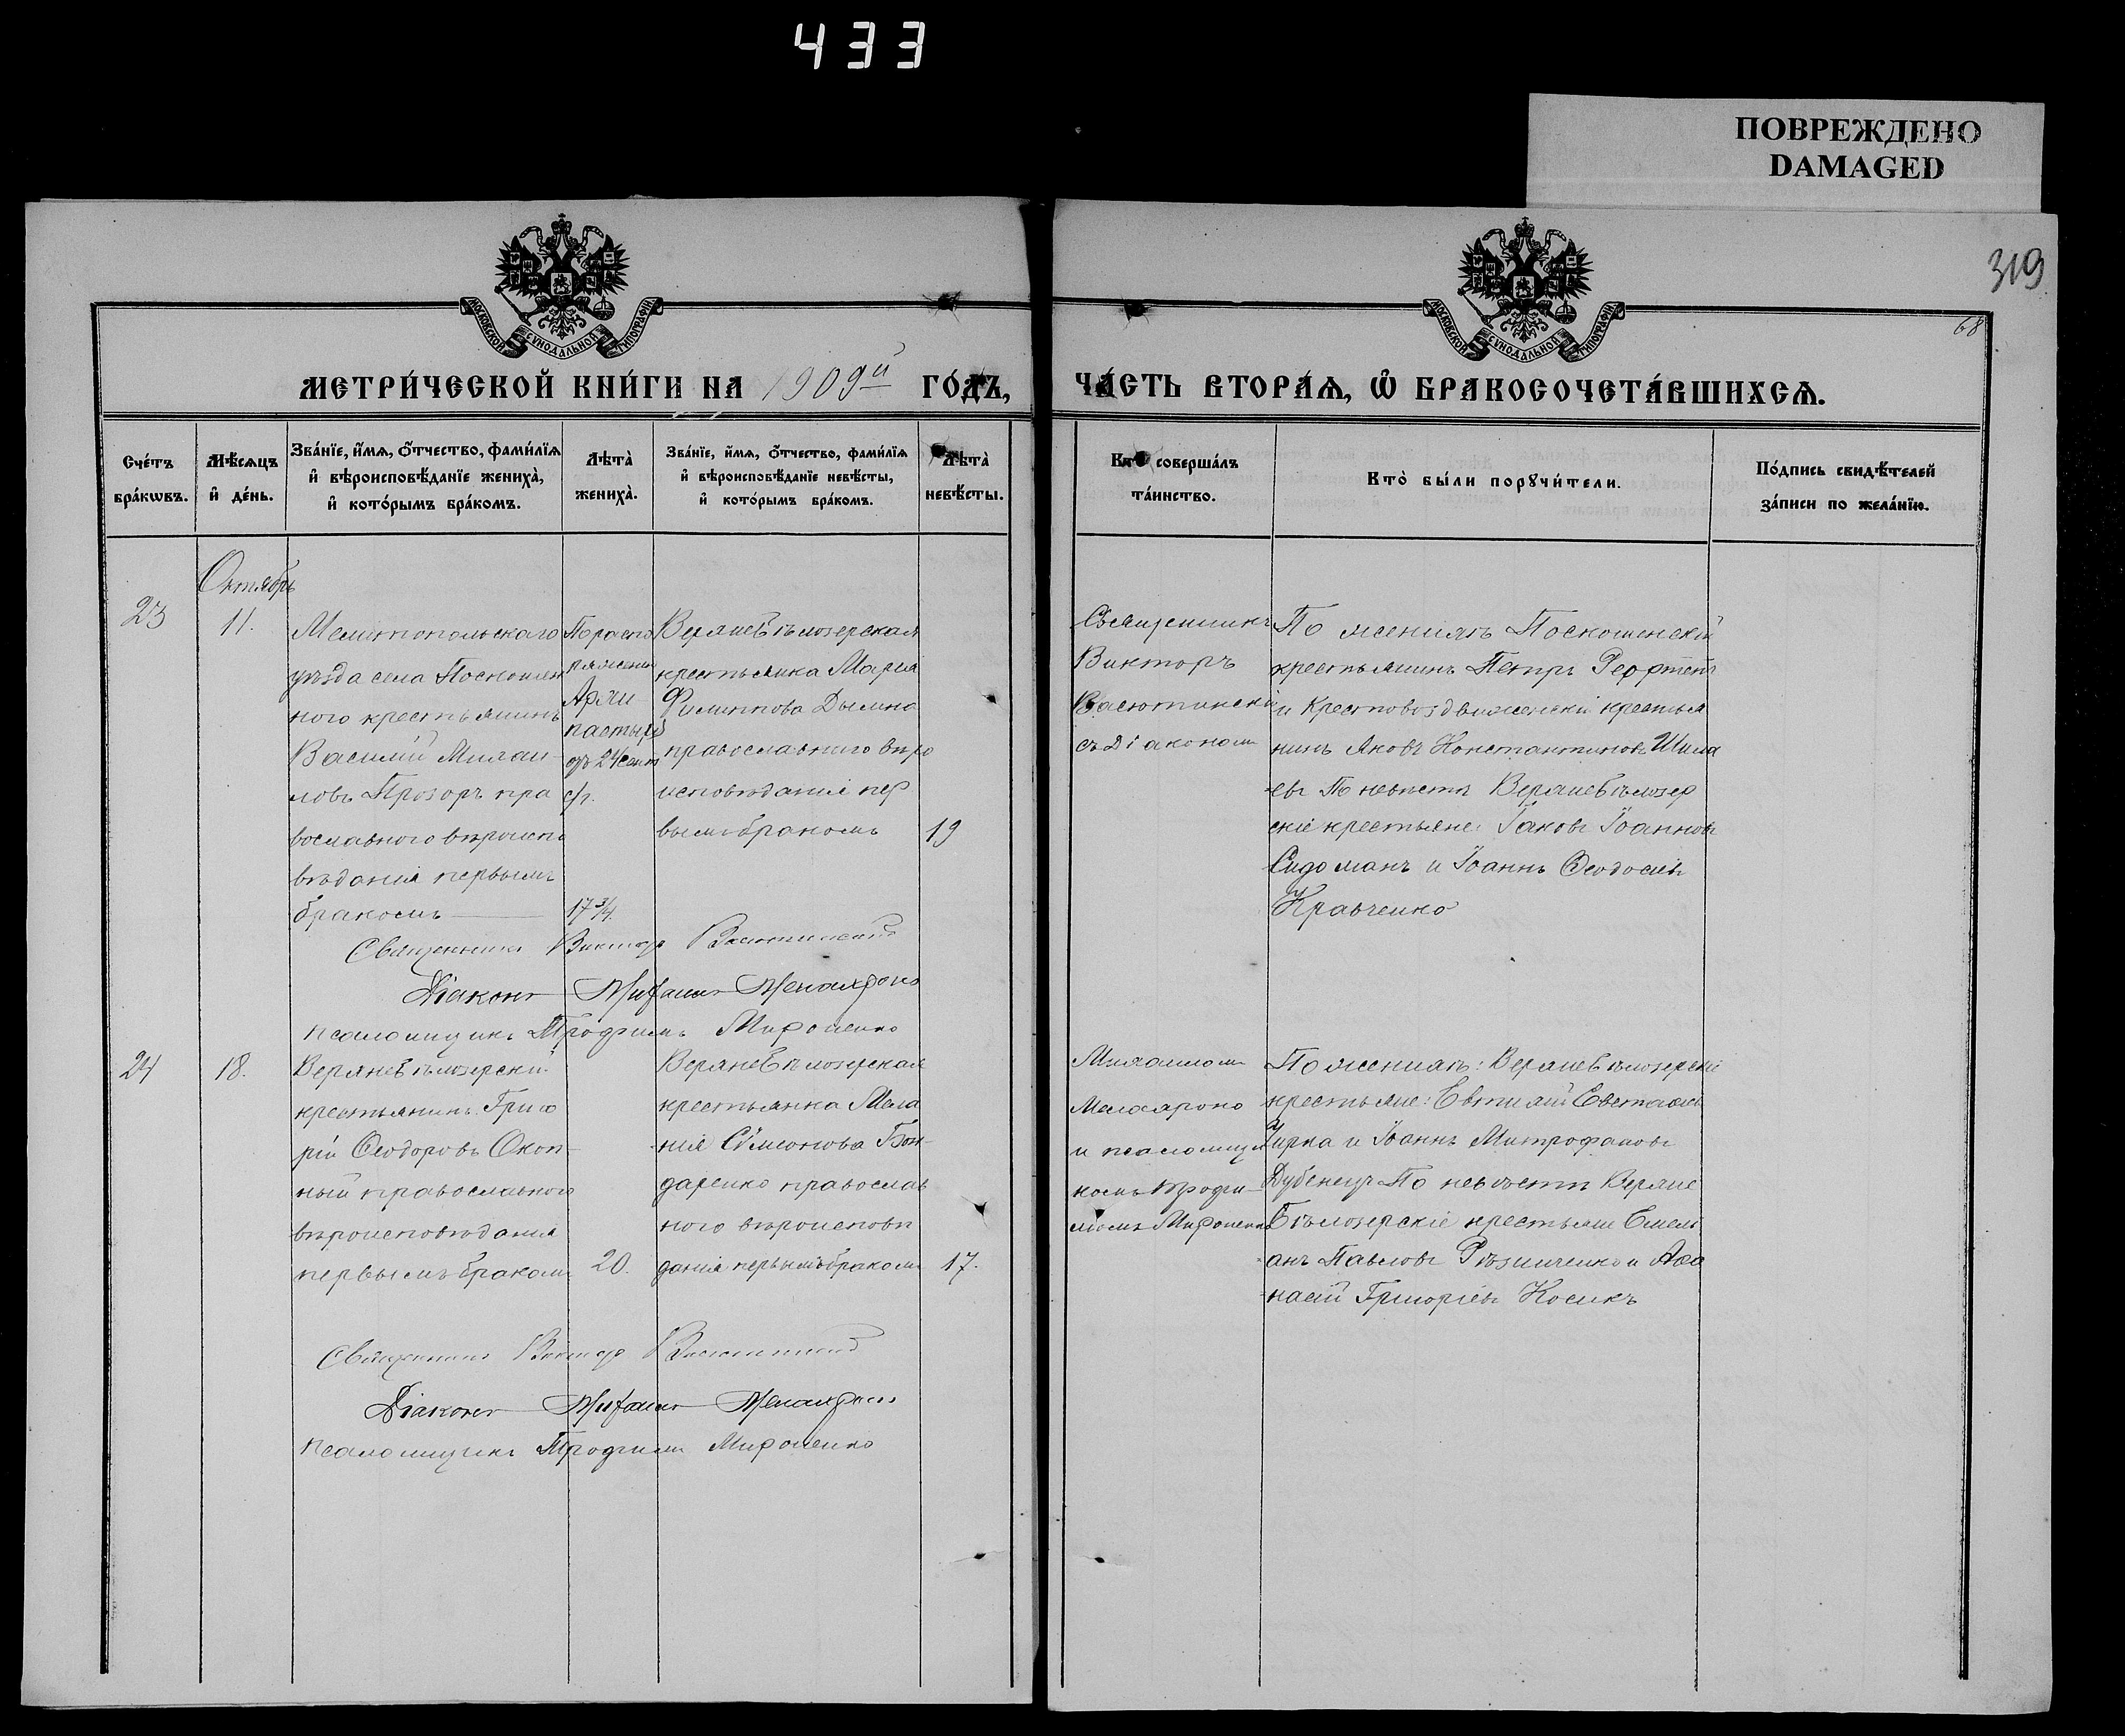 433
ПОВРЕЖДЕНО
DAMAGED
319
68
МОСКОВСКОЙ СѴНОДАЛЬНОЙ ТИПОГРАФІИ
МОСКОВСКОЙ СѴНОДАЛЬНОЙ ТИПОГРАФІИ
МЕТРИ́ЧЕСКОЙ КНИ́ГИ НА 1909й ГО́ДЪ,
ЧА́СТЬ ВТОРА́Я, Ѽ БРАКОСОЧЕТА́ВШИХСЯ.
Сче́тъ
бра́кѡвъ.
Мѣ́сяцъ
и҆ де́нь.
Зва́нїе, и҆́мѧ, ѻ҆́тчество, фами́лїѧ
и҆ вѣроисповѣ́данїе жениха̀,
и҆ кото́рымъ бра́комъ.
Лѣта̀
жениха̀.
Зва́нїе, и҆́мѧ, ѻ҆́тчество, фами́лїѧ
и҆ вѣроисповѣ́данїе невѣ́сты,
и҆ кото́рымъ бра́комъ.
Лѣта̀
невѣ́сты.
Кто̀ соверша́лъ
та́инство.
Кто̀ бы́ли порꙋчи́тели.
По́дпись свидѣ́телей
за́писи по жела́нїю.
Октябрь
23
11.
Мелитопольскаго
уѣзда села
ного крестьянинъ
Василій Михаи
ловъ Прозоръ пра
вославного вѣроиспо
вѣданія первымъ
бракомъ
По распо
ряжению
Архи
пастыря
отъ 24 сент
с/г.
17 3/4
Верхнебѣлозерская
крестьянка Марія
Филиппова Дымна
православного вѣро
исповѣданія пер
вымъ бракомъ
19
Священникъ
Викторъ
Васютинскій
съ Діакономъ
По женихѣ
крестьянинъ Петръ
и Крестовоздвиженскій крестья
нинъ Яковъ Константиновъ
евъ По невѣстѣ Верхнебѣлозер
скіе крестьяне: Іаковъ Іоанновъ
и Іоаннъ Ѳеодосіевъ
Кравченко
Священникъ Викторъ Васютинскій
Діаконъ Михаилъ
псаломщикъ Трофимъ Мироненко
24
18.
Верхнебѣлозерскій
крестьянинъ Григо
рій Ѳеодоровъ Окоп-
ный православного
вѣроисповѣданія
первымъ бракомъ
20.
Верхнебѣлозерская
крестьянка Мела
нія Сѵмеонова Бон-
даренко православ
ного вѣроисповѣ
данія первымъ бракомъ
17.
Михаиломъ
и псаломщи
комъ Трофи-
момъ Мироненко
По женихѣ: Верхнебѣлозерскіе
крестьяне: Евтихій Евстафіевъ
Чирка и Іоаннъ Митрофановъ
Дубенецъ По невѣстѣ Верхне
Бѣлозерскіе крестьяне Емель
анъ Павловъ Рѣзниченко и Аѳа
насій Григоріевъ Косикъ
Священникъ Викторъ Васютинскій
Діаконъ Михаилъ
псаломщикъ Трофимъ Мироненко